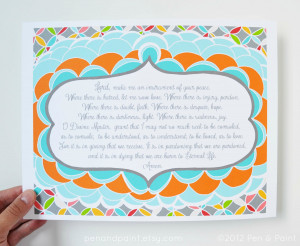 Lord, make me an instrument of your peace.
Where there is hatred, let me sow love; Where there is injury, pardon;
Where there is doubt, faith; Where there is despair, hope;
Where there is darkness, light; Where there is sadness, joy.
O Divine Master, grant that I may not so much seek to be consoled,
as to console; to be understood, as to understand; to be loved, as to love.
For it is in giving that we receive, It is in pardoning that we are pardoned,
and it is in dying that we are born to Eternal Life.
Amen.
penandpaint.etsy.com
© 2012 Pen & Paint